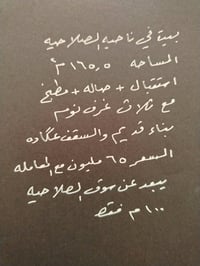 بيت في ناحية الصلاحيه
المساحه ١٦٥.٥ م
استقبال + صاله + مطبخ
مع ثلاث غرف نوم
بناء قديم والسقف عكاده
السعر ٦٥ مليون مع المعامله
يبعد عن سوق الصلاحيه
١٠٠ م فقط